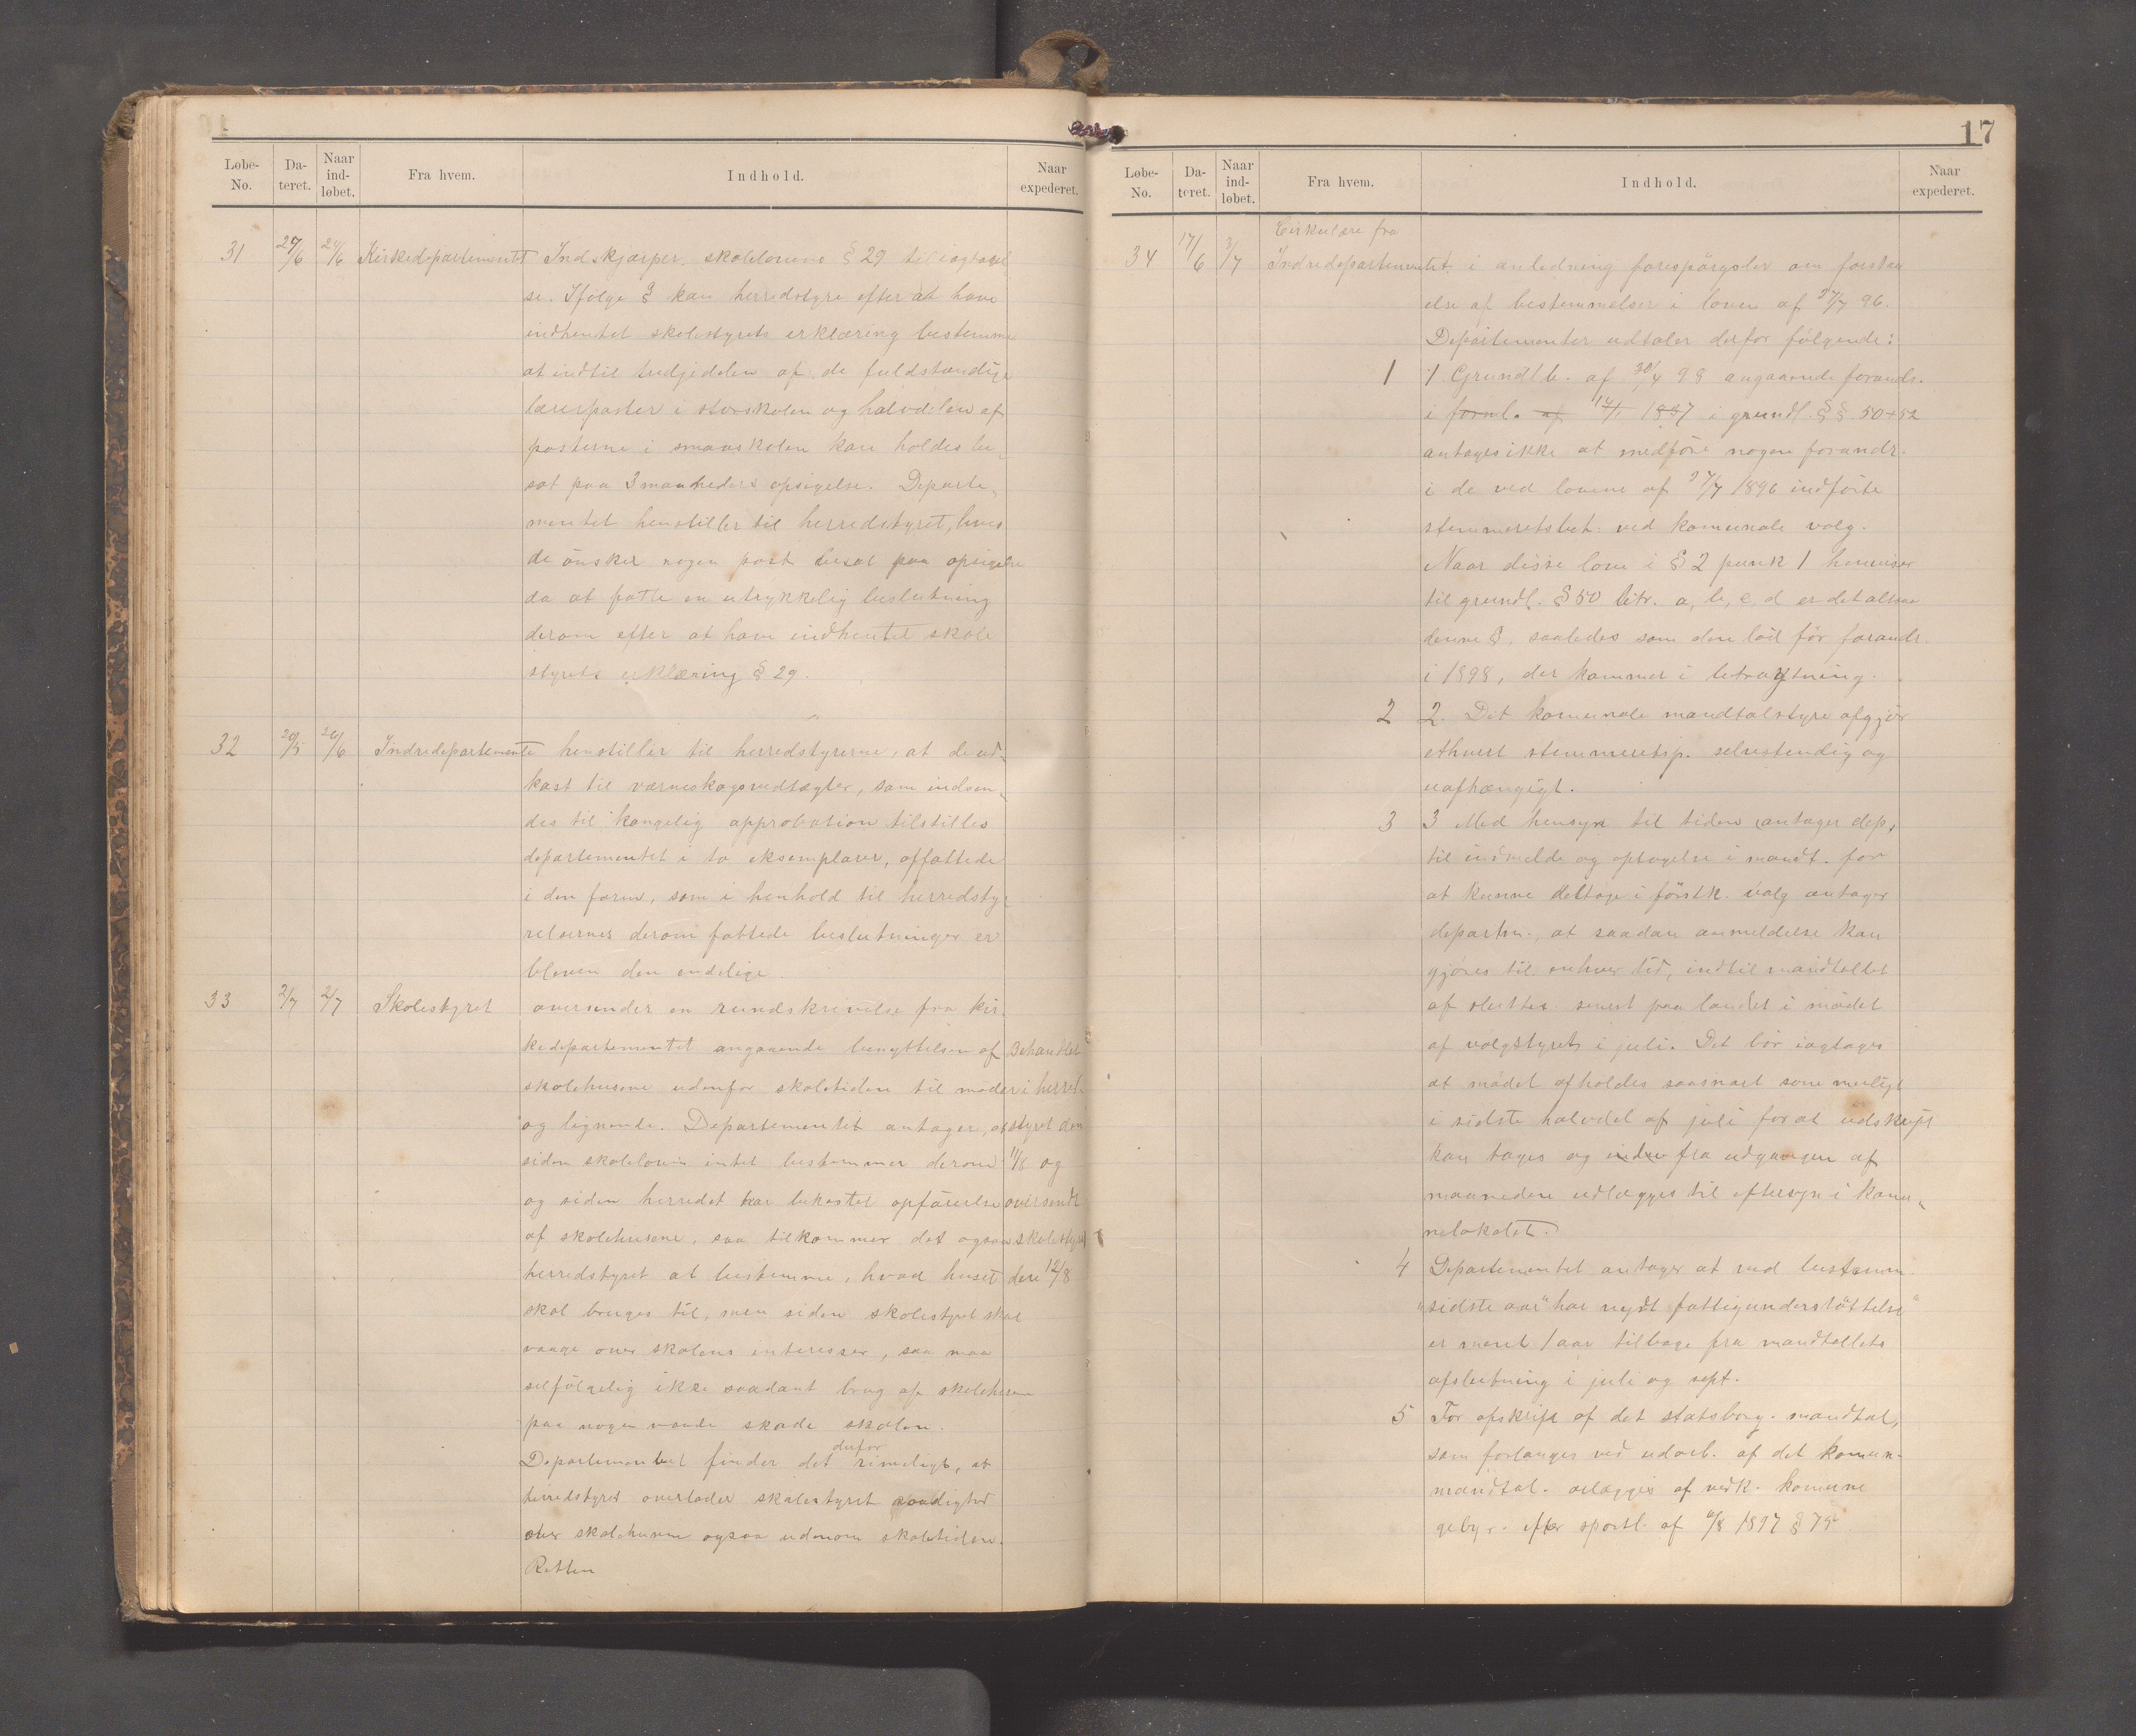 Løbe-
No.
Da-
teret.
Naar
ind-
løbet.
Fra hvem.
Indhold.
Naar
expederet.
31 27/6 Kirkedepartementet Indskjærper skolelovens § 29 til iagtagel
se. Ifølge § kan herredstyre efter at have
indhentet skolestyrets erklæring bestemme
at indtil tredjedelen af de fuldstændige
lærerposter i storskolen og halvdelen af
posterne i smaaskolen kan holdes be-
sat paa 3 maaneders opsigelse. Departe-
mentet henstiller til herredstyret, hvis
de ønsker nogen post besat paa opsigelse
da at fatte en utrykkelig beslutning
derom efter at have indhentet skole
styrets erklæring § 29.
32 20/5 26/6 Indredepartemente henstiller til herredstyrerne, at de ud-
kast til værneskogsvedtægter, som indsen-
des til kongelig approbation tilstilles
departementet i to eksemplarer, affattede
i den form, som i henhold til herredsty-
relsernes derom fattede beslutninger er
bleven den endelige.
33 2/7 2/7 Skolestyret oversender en rundskrivelse fra kir-
kedepartementet angaaende benyttelsen af Behandlet
skolehusene udenfor skoletiden til møder i herred
og lignende. Departementet antager, at styret den
siden skoleloven intet bestemmer derom 11/8 og
og siden herredet har bekostet opførelse oversendt
af skolehusene, saa tilkommer det ogsaa skolestyret
herredstyret at bestemme, hvad huset den 12/8
skal bruges til, men siden skolestyret skal
vaage over skolens interesser, saa maa
selfølgelig ikke saadant brug af skolehusene
paa nogen maade skade skolen.
Departementet finder det derfor rimeligt, at
herredstyret overlader skolestyret raadighed
over skolehusene ogsaa udenom skoletiden.
Retten
17
Løbe-
No.
Da-
teret.
Naar
ind-
løbet.
Fra hvem.
Indhold.
Naar
expederet.
Cirkulære fra
34 17/6 3/7 Indredepartementet i anledning forespørgsler om forstaa
else af bestemmelser i loven af 27/7 96.
Departementet udtaler derfor følgende:
1 1 Grundlb. af 30/4 98 angaaende forandr.
i forul. af 1837 i grundl. §§ 50+52
antages ikke at medføre nogen forandr.
i de ved lovene af 27/7 1896 indførte
stemmeretsbet. ved komunale valg.
Naar disse love i § 2 punk 1 henviser
til grundl. § 50 litr. a, b, c, d er det altsaa
denne §, saaledes som den lød før forandr.
i 1898, der kommer i betragtning.
2 2. Det komunale mandtalstyre afgjør
ethvert stemmeretsp. selvstendig og
uafhængigt.
3 3 Med hensyn til tiden antager dep,
til indmelde og optagelse i mandt. for
at kunne deltage i førstk. valg antager
departm., at saadan anmeldelse kan
gjøres til enhver tid, indtil mandtallet
af sluttes senest paa landet i mødet
af valgstyret i juli. Det bør iagtages
at mødet afholdes saasnart som muligt
i sidste halvdel af juli forat udskrift
kan tages og inden fra udgangen af
maaneden udlægges til eftersyn i komu-
nelokalet.
4 Departementet antager at ved bestemm.
"sidste aar" har nydt fattigunderstøttelse"
er ment 1 aar tilbage fra mandtallets
afslutning i juli og sept.
5 For afskrift af det statsborg. mandtal,
som forlanges ved udarb. af det komun-
mandtal. erlægges af vedk. komune
gebyr. efter sportl. af 6/8 1897 § 79